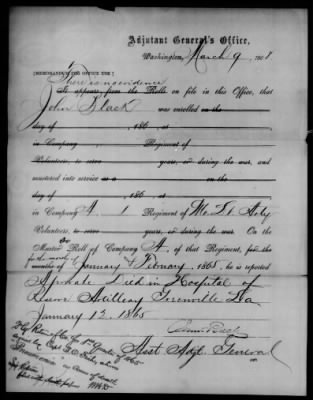 Adjutant General's Office,
Washington, March 9, 1868
[MEMORANDUM FOR OFFICE USE]
There is no evidence
It appears from the Rolls on file in this Office, that
John Black was enrolled on the
day of , 186 , at
in Company Regiment of
Volunteers, to serve years, or during the war, and
mustered into service as a on the
day of , 186 , at
in Company A. 1 Regiment of Me. Lt. Arty
Volunteers, to serve years, or during the war. On the
Muster Roll of Company A, of that Regiment, for the
for the months of
months of January & February, 1865, he is reported
A private Died in Hospital of
Greenville La
January 12, 1865
Asst Adjt. General
of 1865
Capt
Pneumonia" as cause of death